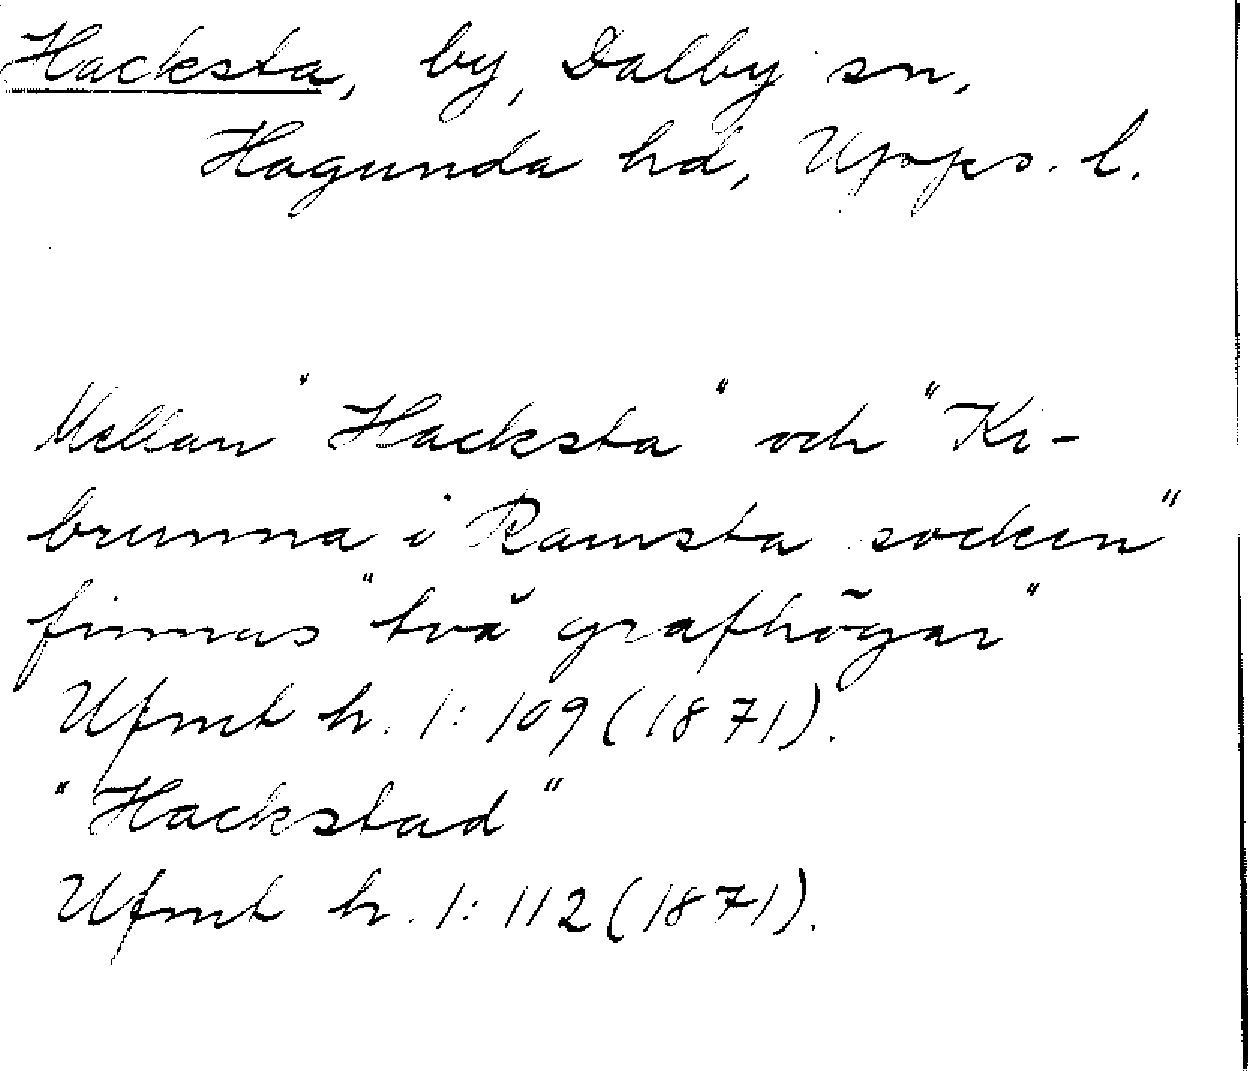 Hacksta, by, Dalby sn,
Hagunda hd, Upps. l.
Mellan "Hacksta" och "Ki-
brunna i Ramsta socken"
finnas "två grafhögar"
Ufmt h. 1: 109 (1871).
"Hackstad"
Ufmt h. 1: 112 (1871).